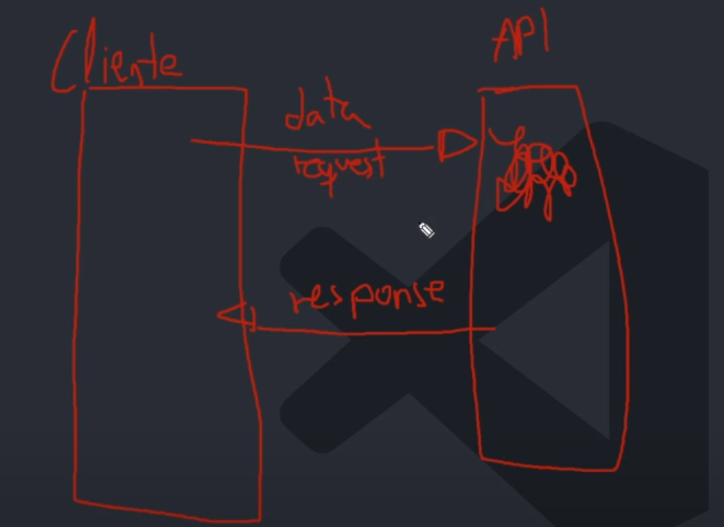 Cliente
API
data
request
response